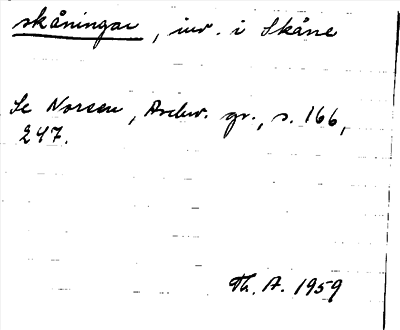 skåningar, inv. i Skåne
Se Noreen, Aschw. gr., s. 166,
247.
Th. A. 1959